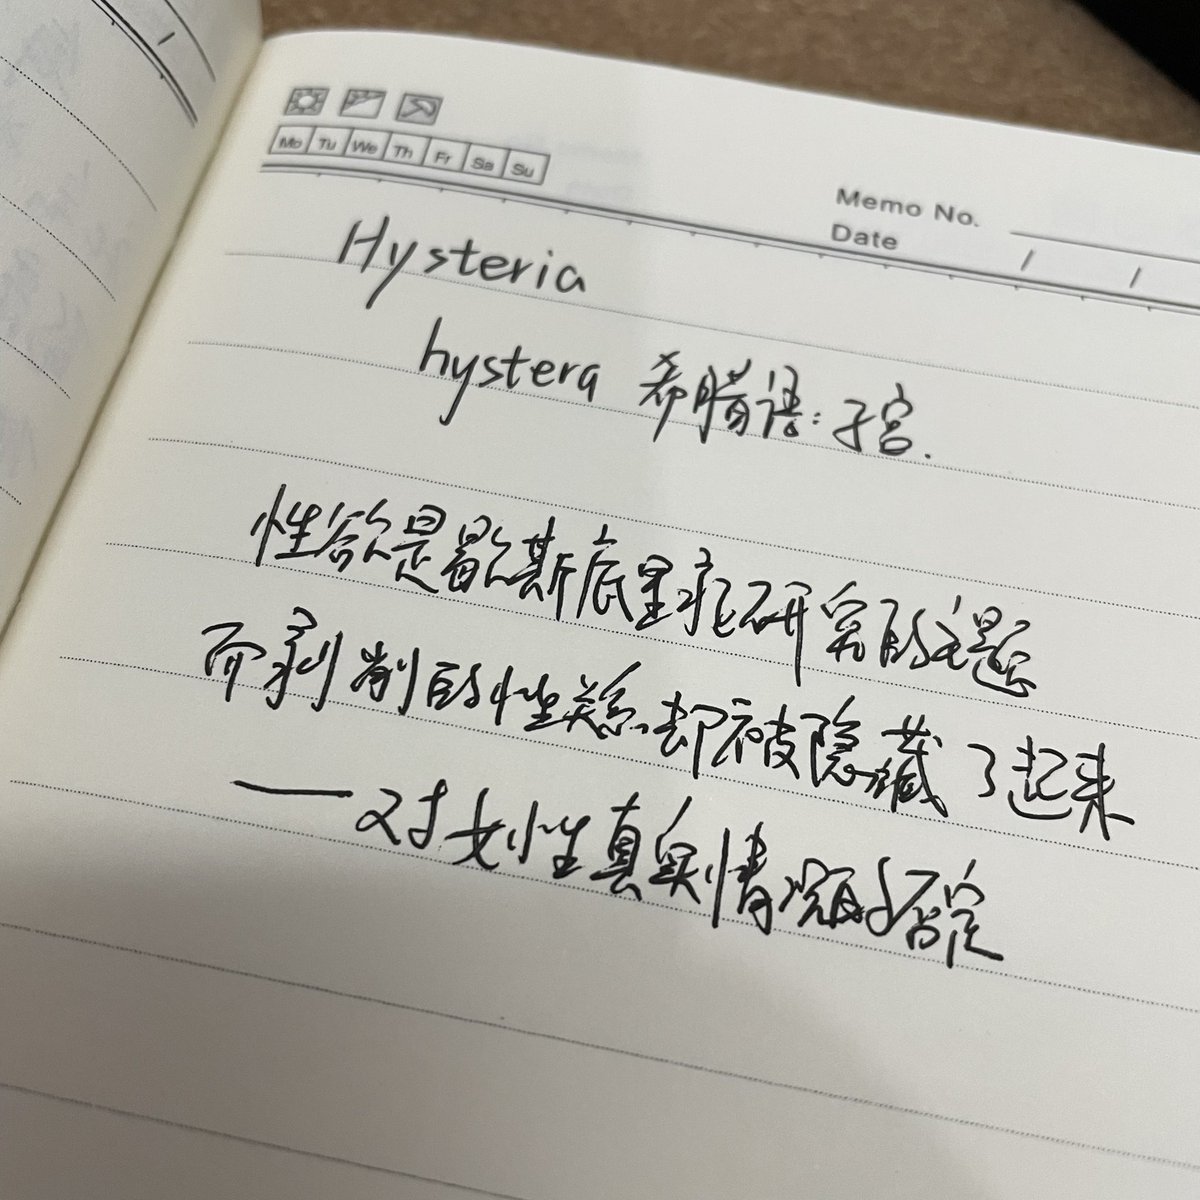 Mo Tu We Th Fr Sa Su
Memo No.
Date / /
Hysteria
hystera 希腊语：子宫.
性欲是歇斯底里症研究的主题
而剥削的性关系却被隐藏了起来
——对女性真实情况的否定